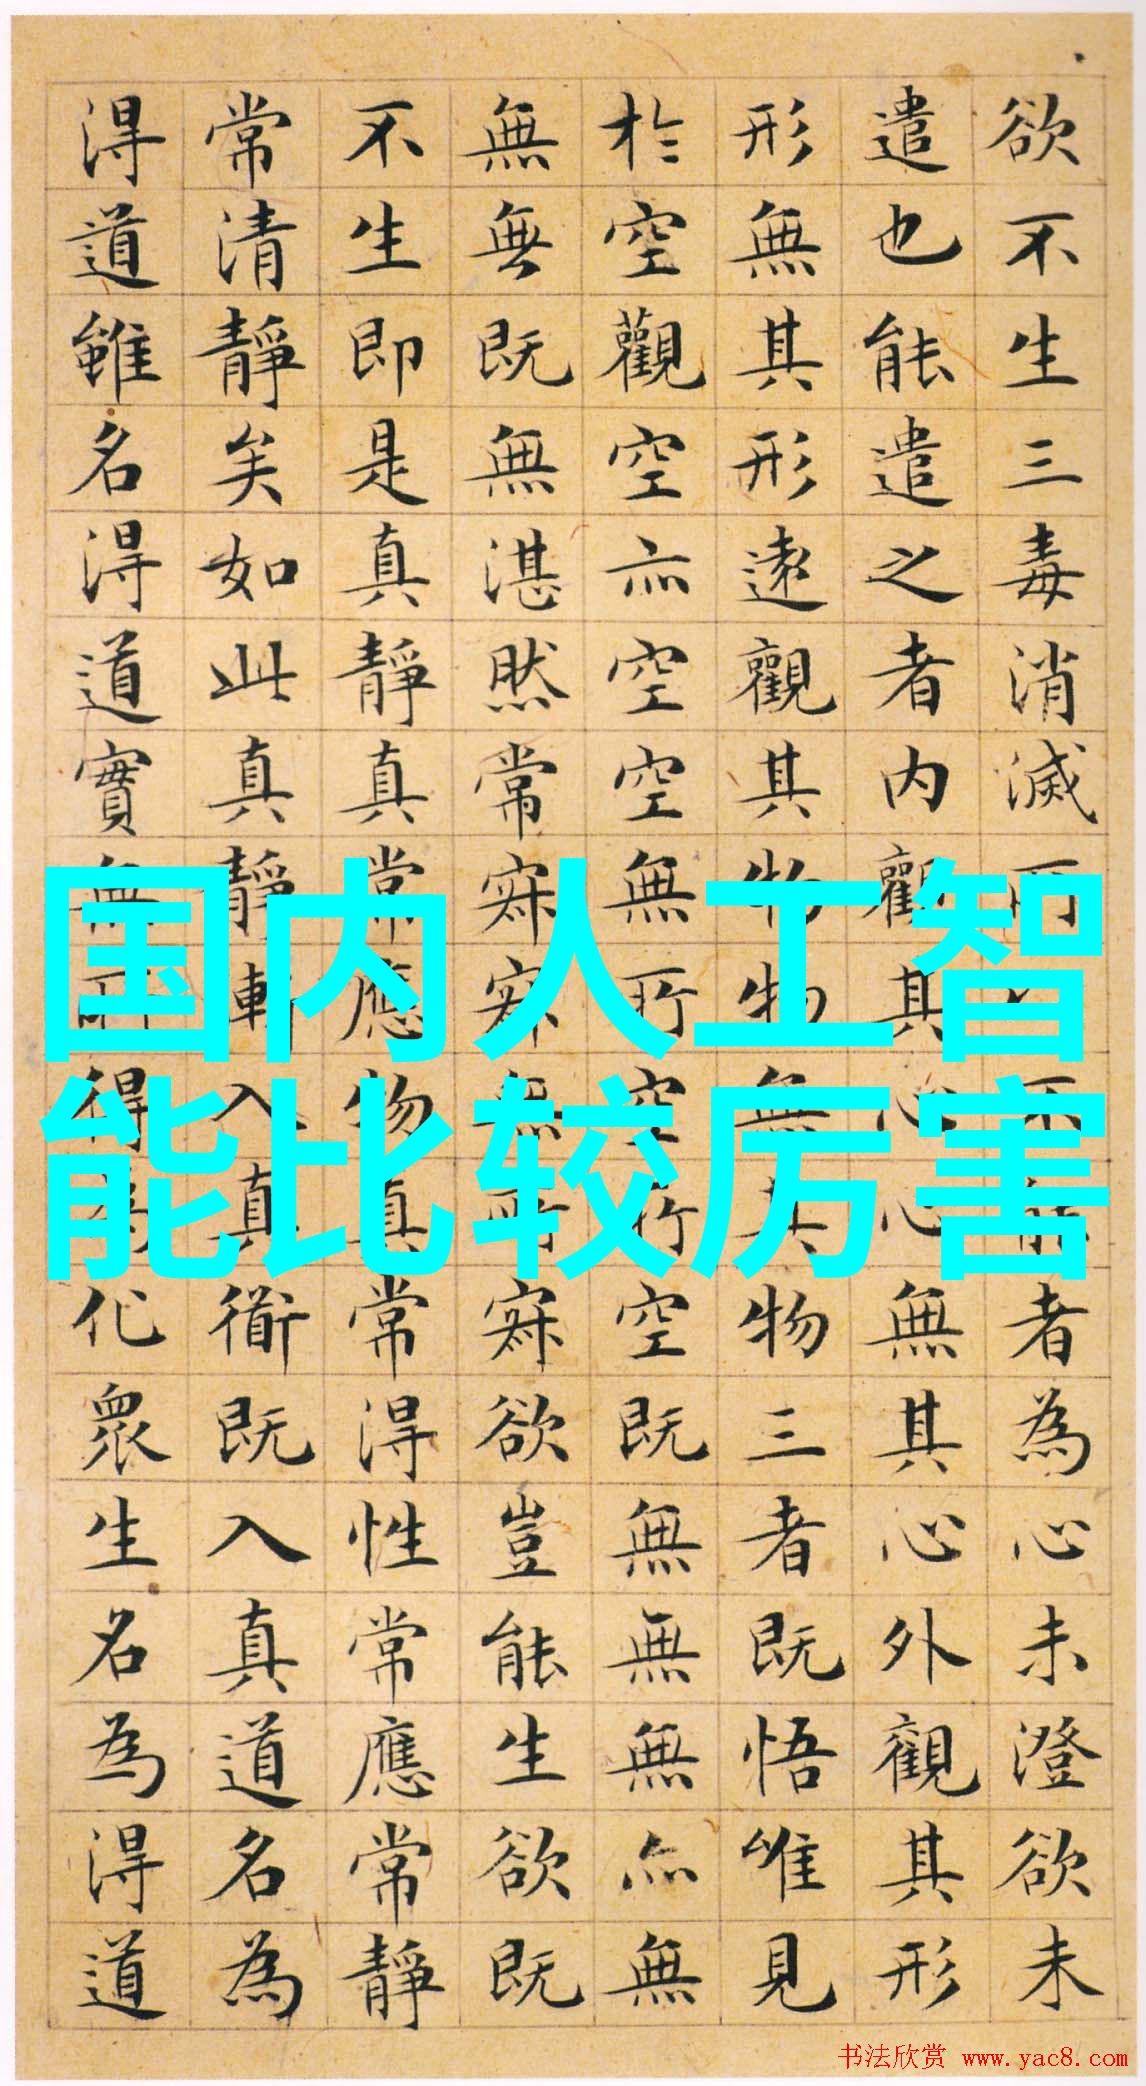 欲不生三毒消滅所不能者為心未澄欲未
遣也能遣之者内觀其心心無其心外觀其形
形無其形遠觀其物物無其物三者既悟唯見
於空觀空亦空空無所空所空既無無無亦無
無無既無湛然常寂寂無所寂欲豈能生欲既
不生即是真靜真常應物真常得性常應常靜
常清靜矣如此真靜漸入真衜既入真道名為
得道雖名得道實無所得為化眾生名為得道
国内人工智
能比较厉害
书法欣赏 www.yac8.com